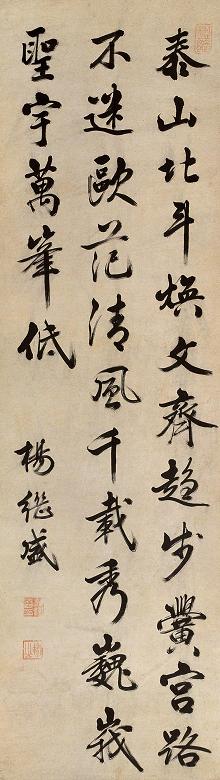 泰山北斗煥文齊趨步黌宮路
不迷歐范清風千載秀巍峨
聖宇萬峯低
楊繼盛